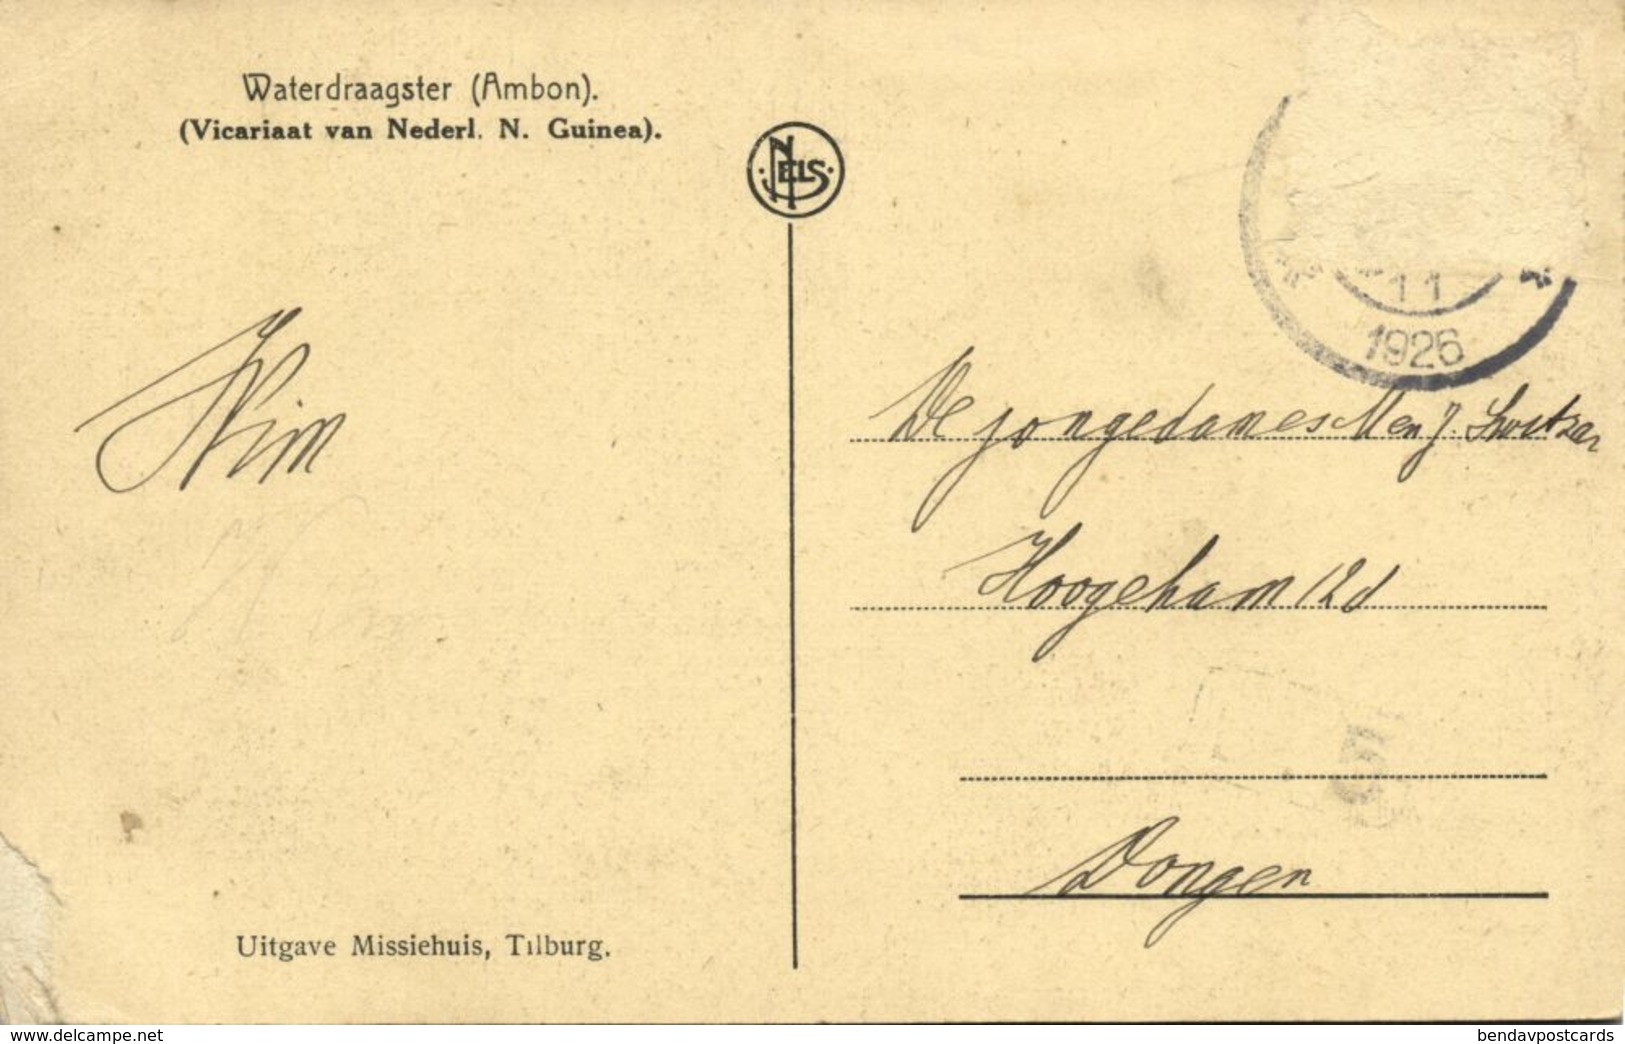 Waterdraagster (Ambon).
(Vicariaat van Nederl. N. Guinea).
NELS
11
1926
Wim
De jongedames M en J.
Hoogeham 12d
Dongen
Uitgave Missiehuis, Tilburg.
www.delcampe.net
bendavpostcards